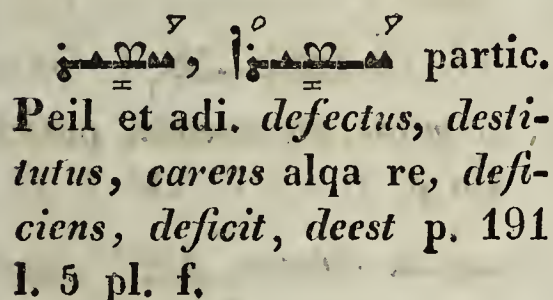 ܚܰܣܻܝܪ, ܚܰܣܻܝܪܳܐ partic.
Peil et adi. defectus, desti-
tutus, carens alqa re, defi-
ciens, deficit, deest p. 191
l. 5 pl. f.